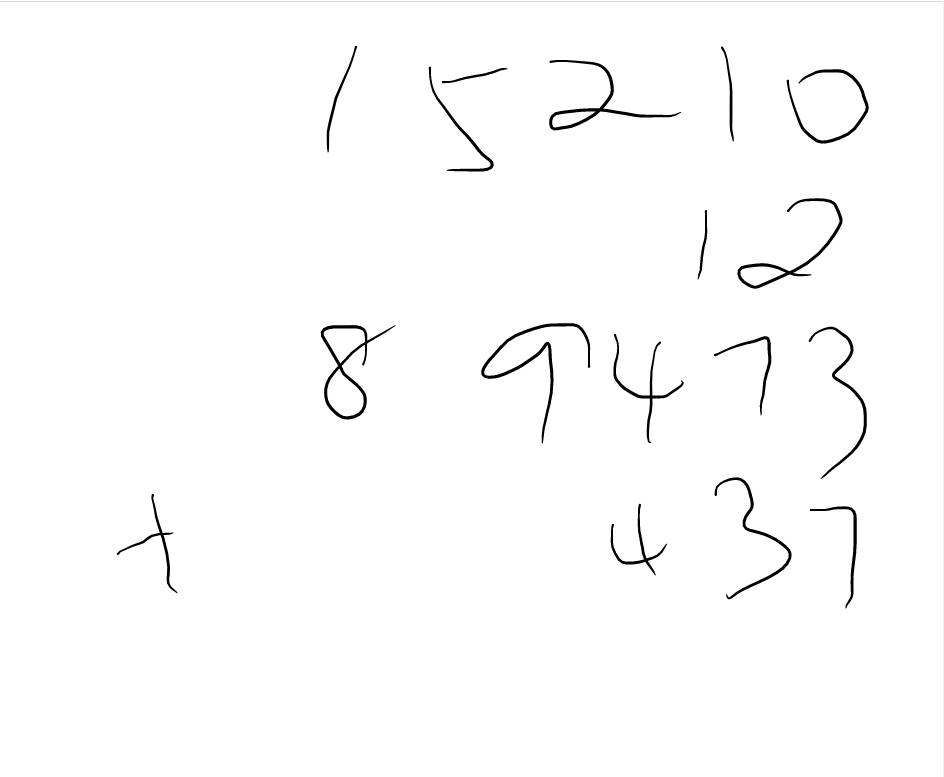 15210
12
89473
+ 437